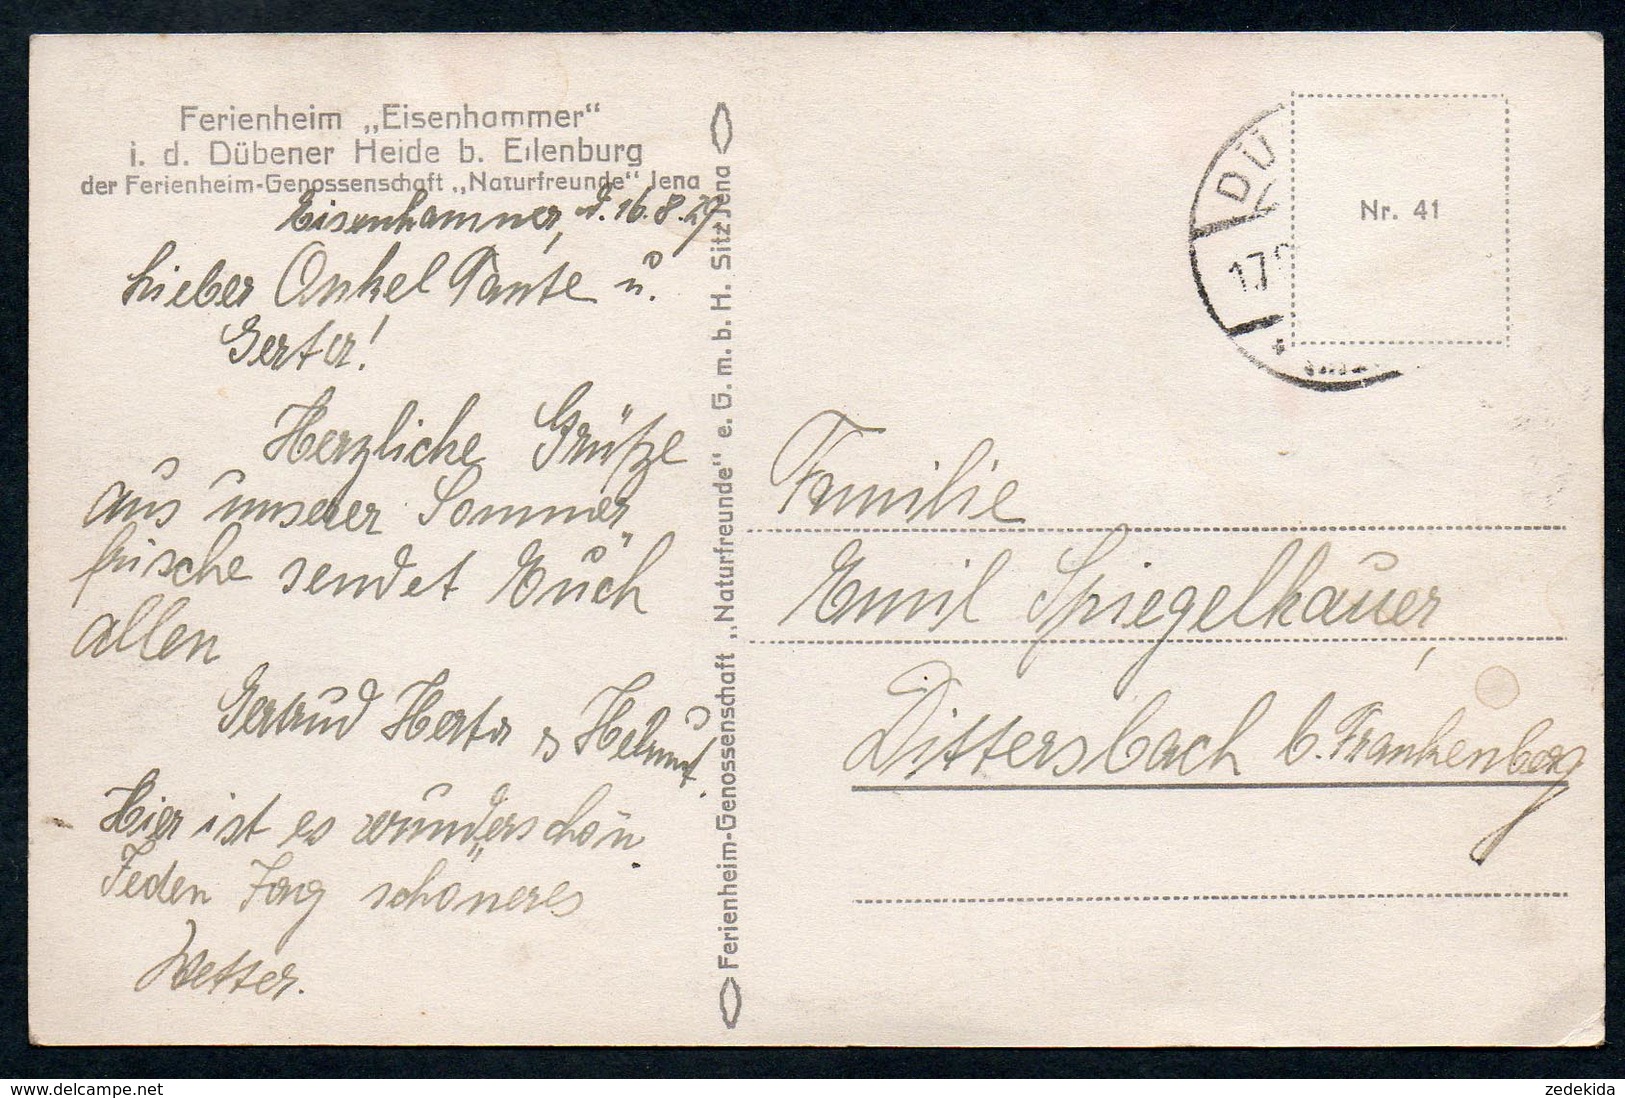 Ferienheim „Eisenhammer“
i. d. Dübener Heide b. Eilenburg
der Ferienheim-Genossenschaft „Naturfreunde“ Jena
Eisenhammer, d. 16.8.29
Lieber Onkel Tante u.
Gerta!
Herzliche Grüße
aus unserer Sommer
frische sendet Euch
allen
Gertrud Herta & Helmut.
Hier ist es wunderschön
Jeden Tag schöneres
Wetter.
Ferienheim-Genossenschaft „Naturfreunde“ e. G. m. b. H. Sitz Jena
DÜ
17.
Nr. 41
Familie
Emil Spiegelhauer,
Dittersbach b. Frankenberg
delcampe.net
zedekida